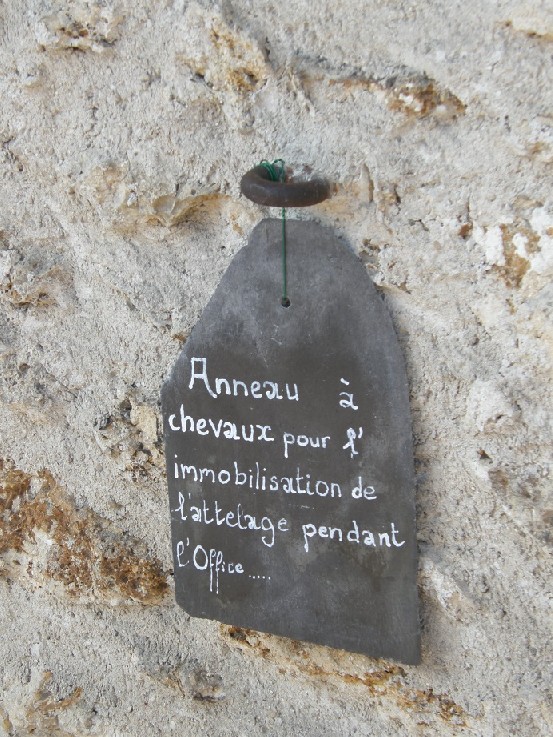 Anneau à
chevaux pour l'
immobilisation de
l'attelage pendant
l'Office.....